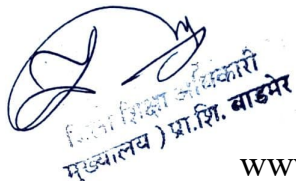 जिला शिक्षा अधिकारी
मुख्यालय ) प्रा.शि. बाडमेर
www